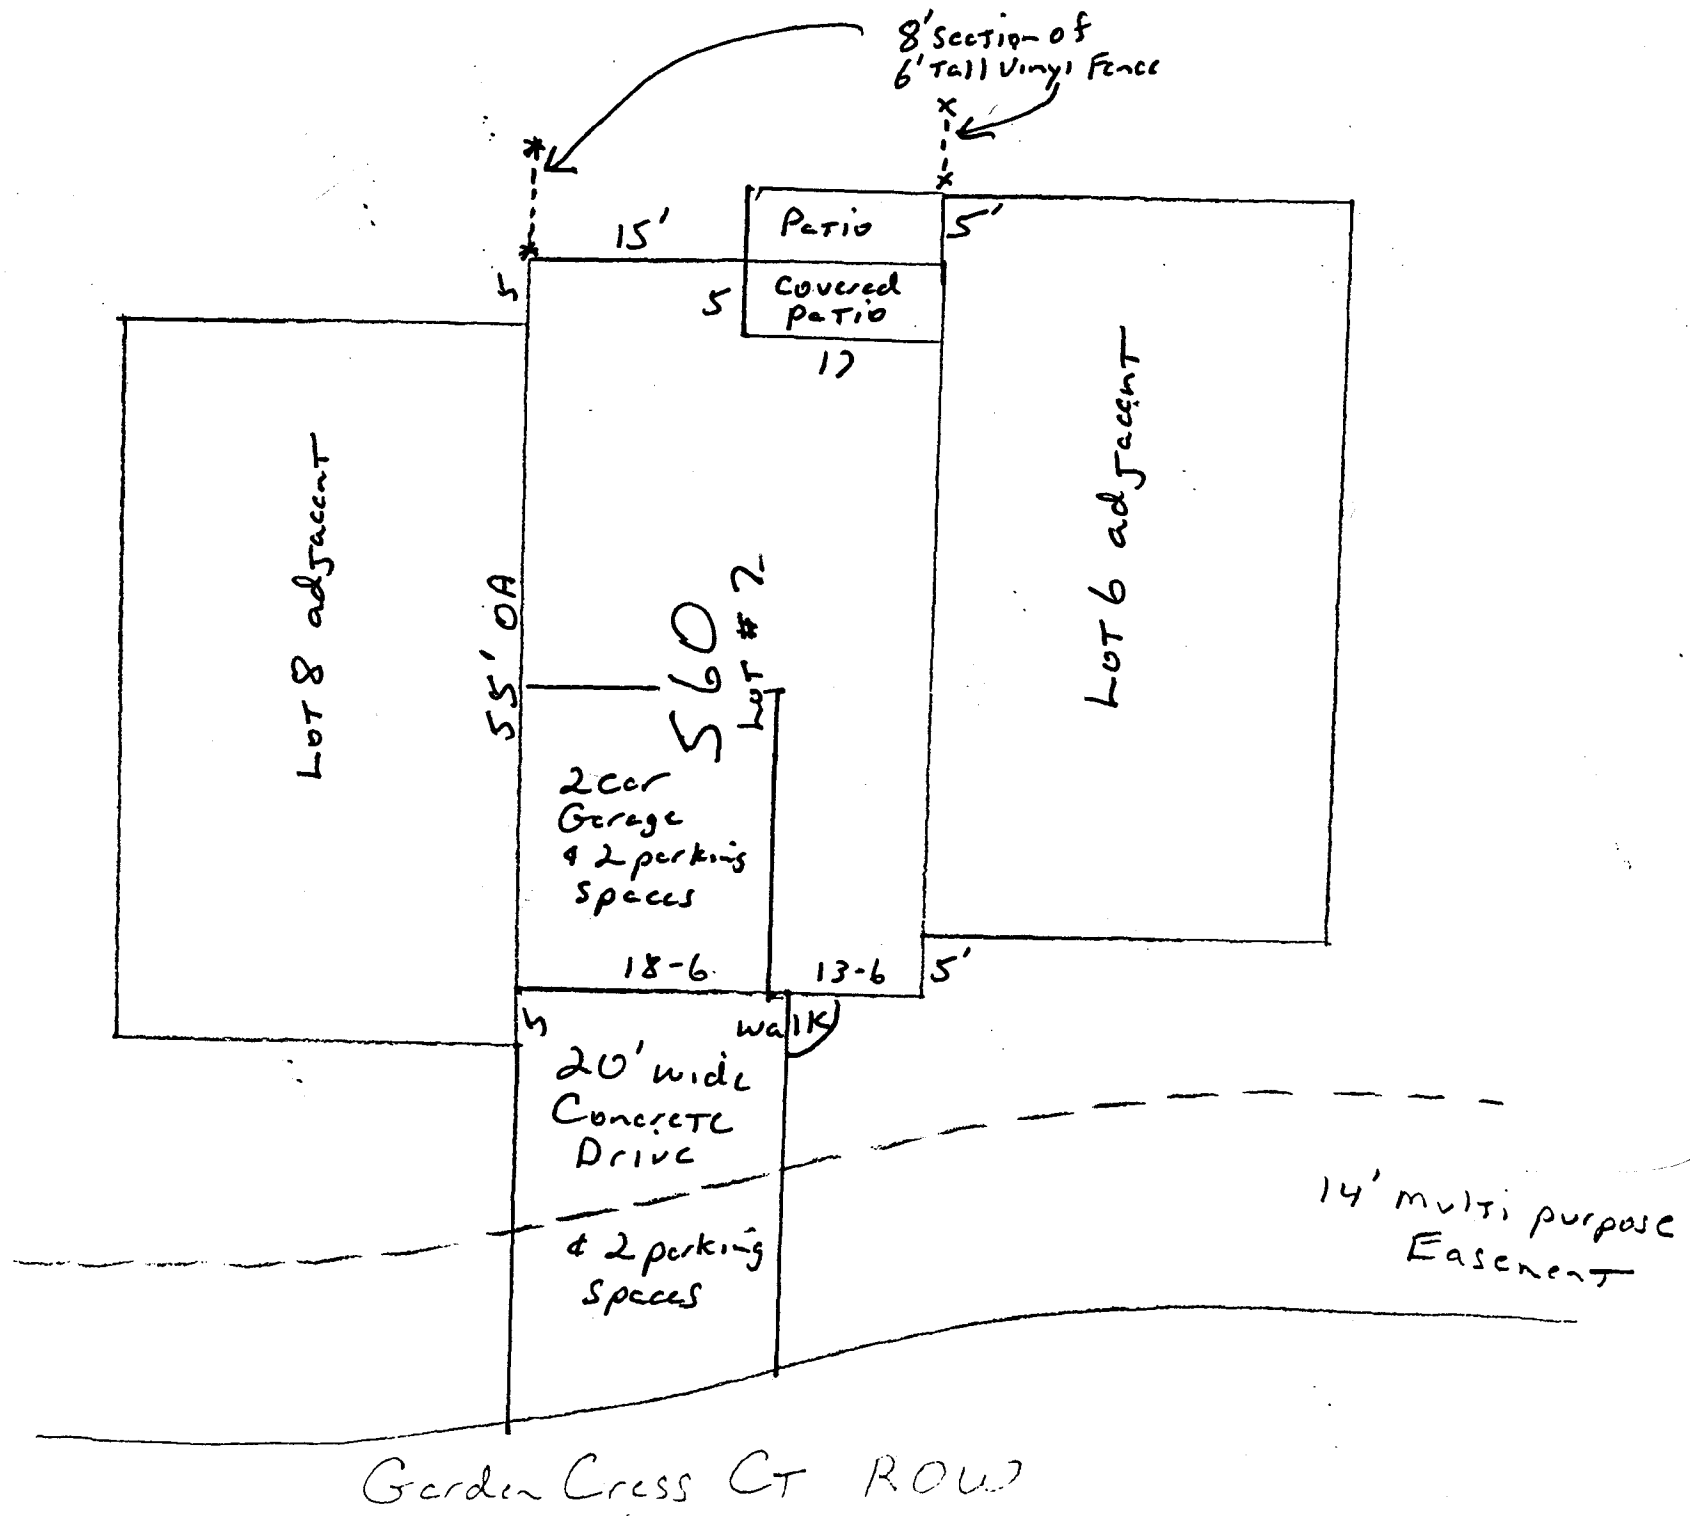 8' Section of
6' Tall Vinyl Fence
15'
Patio
5'
5
5
Covered
Patio
17
Lot 8 adjacent
55' OA
560
Lot # 7
Lot 6 adjacent
2 car
Garage
& 2 parking
spaces
18-6
13-6
5'
5
walk
20' wide
Concrete
Drive
& 2 parking
spaces
14' multi purpose
Easement
Garden Cress CT ROW